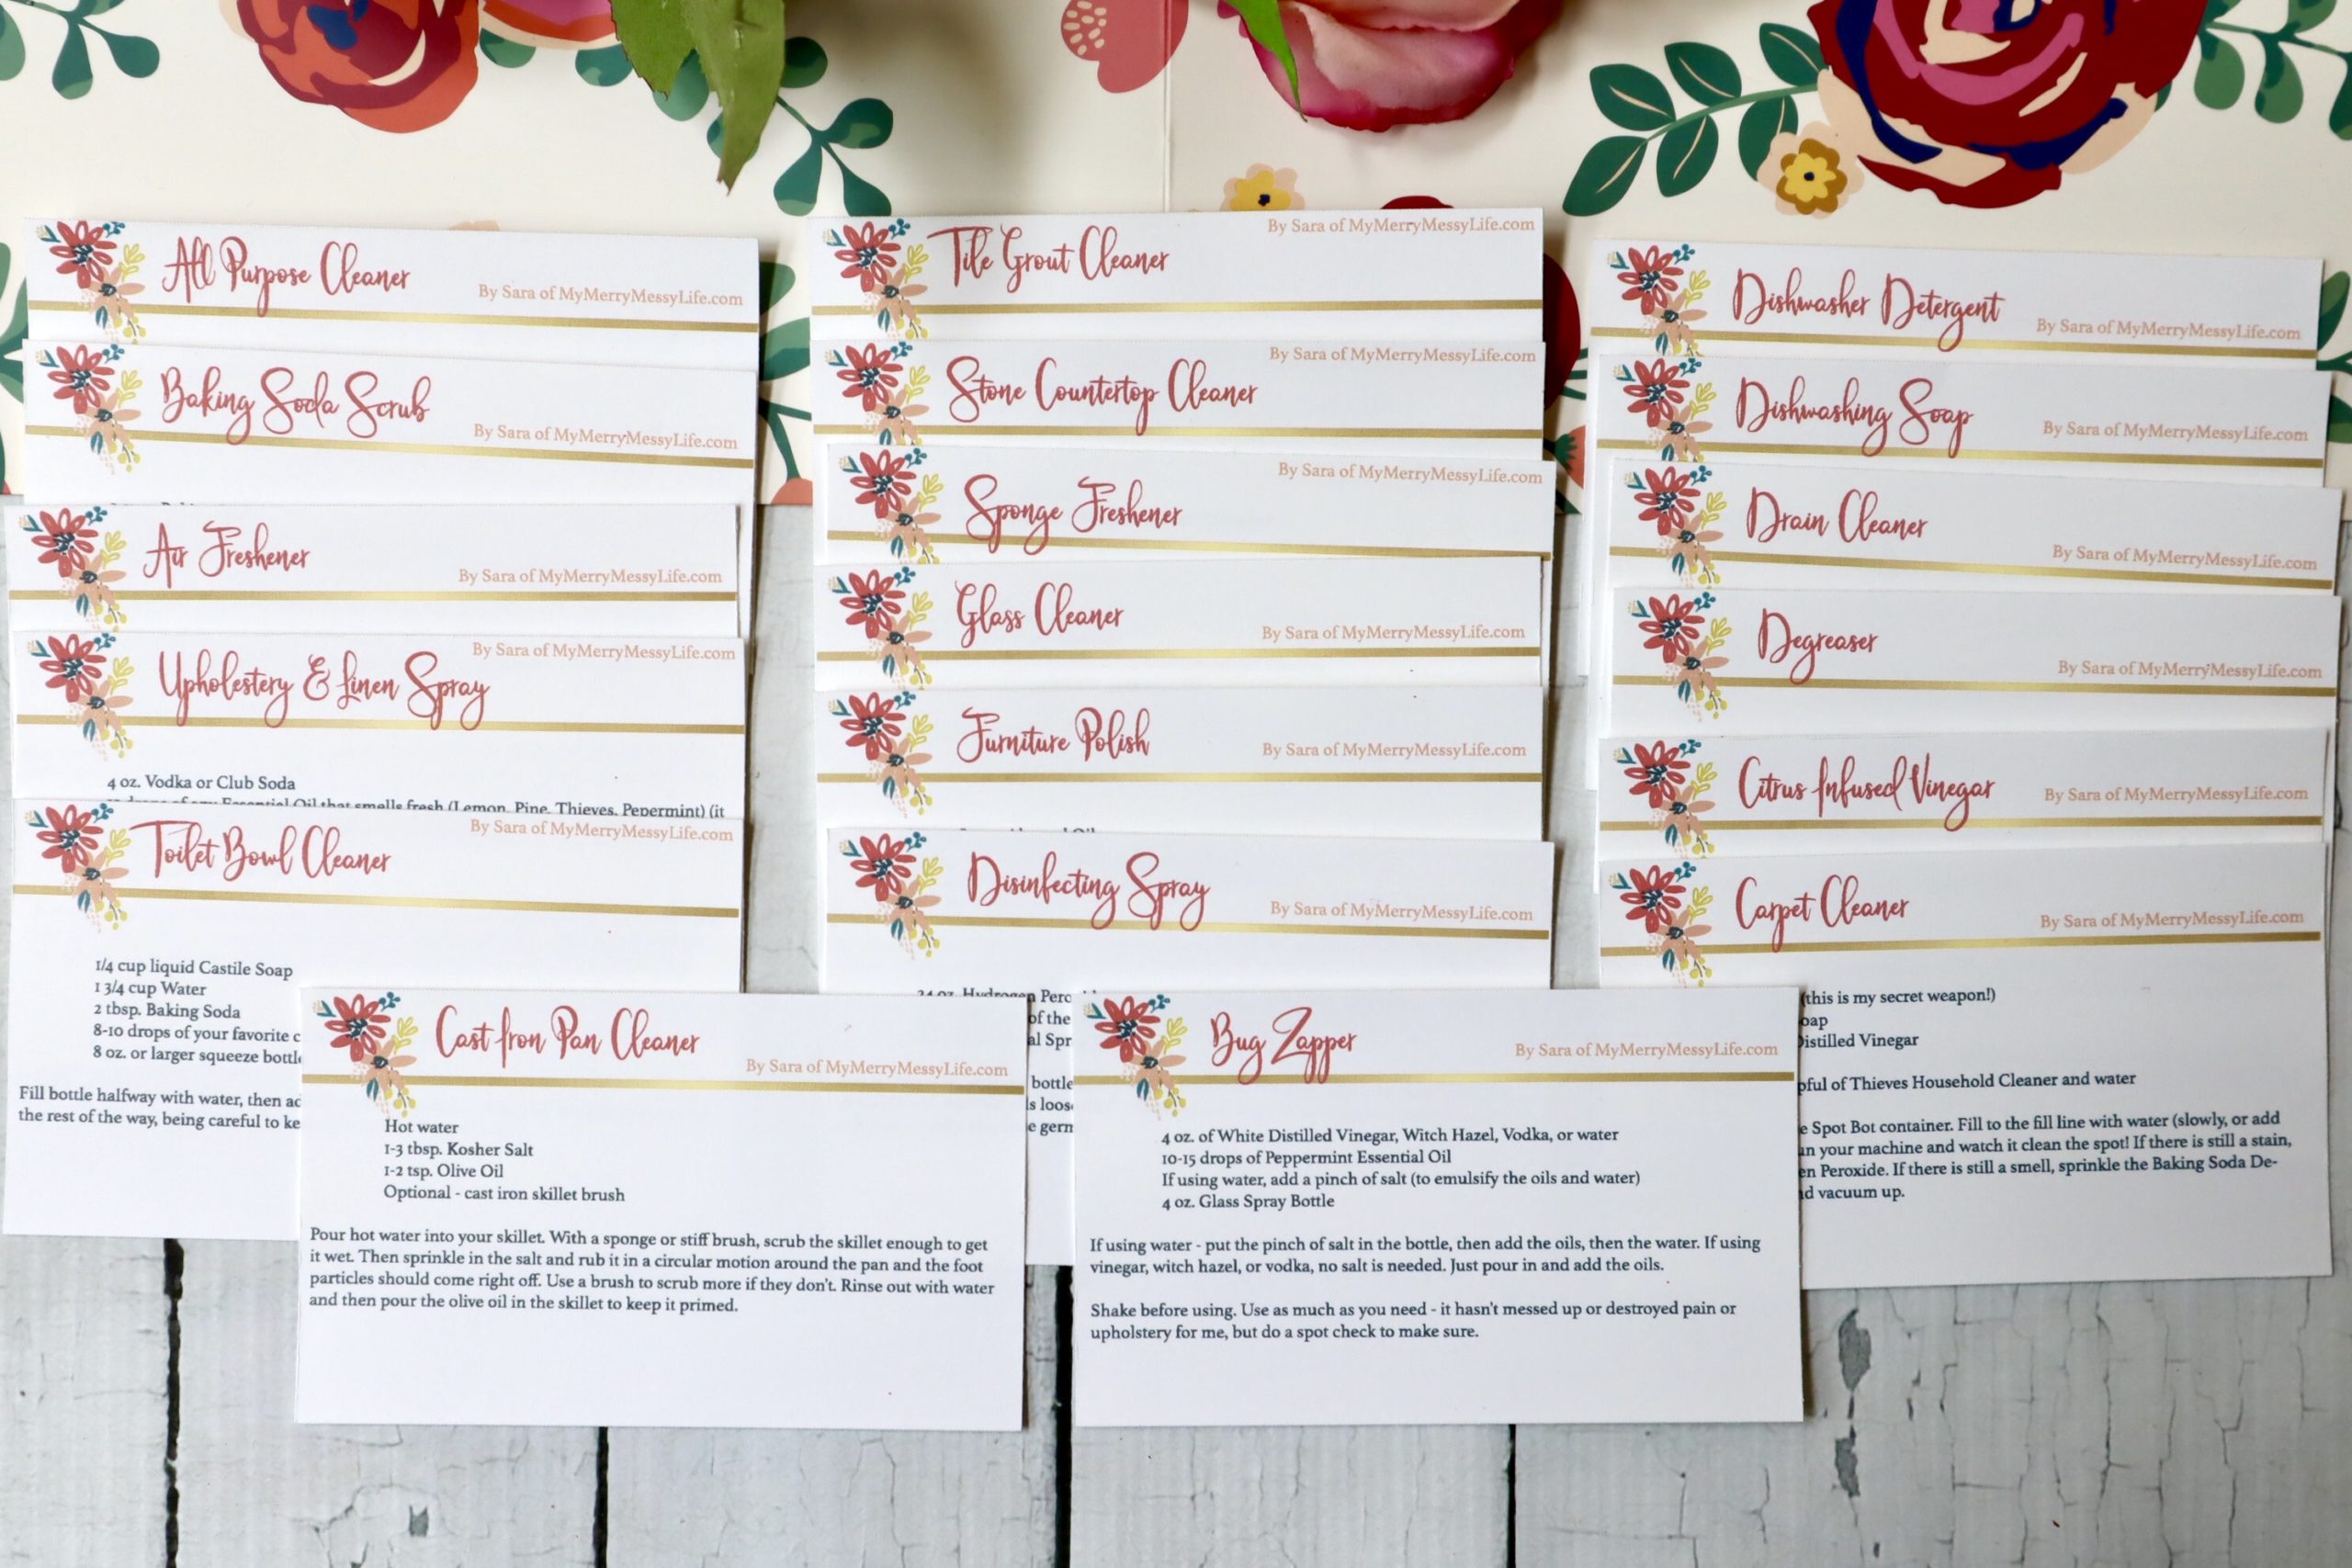 All Purpose Cleaner
By Sara of MyMerryMessyLife.com
Baking Soda Scrub
By Sara of MyMerryMessyLife.com
Air Freshener
By Sara of MyMerryMessyLife.com
Upholestery & Linen Spray
By Sara of MyMerryMessyLife.com
4 oz. Vodka or Club Soda
drops of any Essential Oil that smells fresh (Lemon, Pine, Thieves, Pepermint) (it
Toilet Bowl Cleaner
By Sara of MyMerryMessyLife.com
1/4 cup liquid Castile Soap
1 3/4 cup Water
2 tbsp. Baking Soda
8-10 drops of your favorite
8 oz. or larger squeeze
Fill bottle halfway with water, then
the rest of the way, being careful to
Tile Grout Cleaner
By Sara of MyMerryMessyLife.com
Stone Countertop Cleaner
By Sara of MyMerryMessyLife.com
Sponge Freshener
By Sara of MyMerryMessyLife.com
Glass Cleaner
By Sara of MyMerryMessyLife.com
Furniture Polish
By Sara of MyMerryMessyLife.com
Disinfecting Spray
By Sara of MyMerryMessyLife.com
Hydrogen
of the
bottle
Dishwasher Detergent
By Sara of MyMerryMessyLife.com
Dishwashing Soap
By Sara of MyMerryMessyLife.com
Drain Cleaner
By Sara of MyMerryMessyLife.com
Degreaser
By Sara of MyMerryMessyLife.com
Citrus Infused Vinegar
By Sara of MyMerryMessyLife.com
Carpet Cleaner
By Sara of MyMerryMessyLife.com
(this is my secret weapon!)
Distilled Vinegar
of Thieves Household Cleaner and water
Spot Bot container. Fill to the fill line with water (slowly, or add
your machine and watch it clean the spot! If there is still a stain,
Peroxide. If there is still a smell, sprinkle the Baking Soda De-
vacuum up.
Cast Iron Pan Cleaner
By Sara of MyMerryMessyLife.com
Hot water
1-3 tbsp. Kosher Salt
1-2 tsp. Olive Oil
Optional - cast iron skillet brush
Pour hot water into your skillet. With a sponge or stiff brush, scrub the skillet enough to get
it wet. Then sprinkle in the salt and rub it in a circular motion around the pan and the foot
particles should come right off. Use a brush to scrub more if they don't. Rinse out with water
and then pour the olive oil in the skillet to keep it primed.
Bug Zapper
By Sara of MyMerryMessyLife.com
4 oz. of White Distilled Vinegar, Witch Hazel, Vodka, or water
10-15 drops of Peppermint Essential Oil
If using water, add a pinch of salt (to emulsify the oils and water)
4 oz. Glass Spray Bottle
If using water - put the pinch of salt in the bottle, then add the oils, then the water. If using
vinegar, witch hazel, or vodka, no salt is needed. Just pour in and add the oils.
Shake before using. Use as much as you need - it hasn't messed up or destroyed pain or
upholstery for me, but do a spot check to make sure.